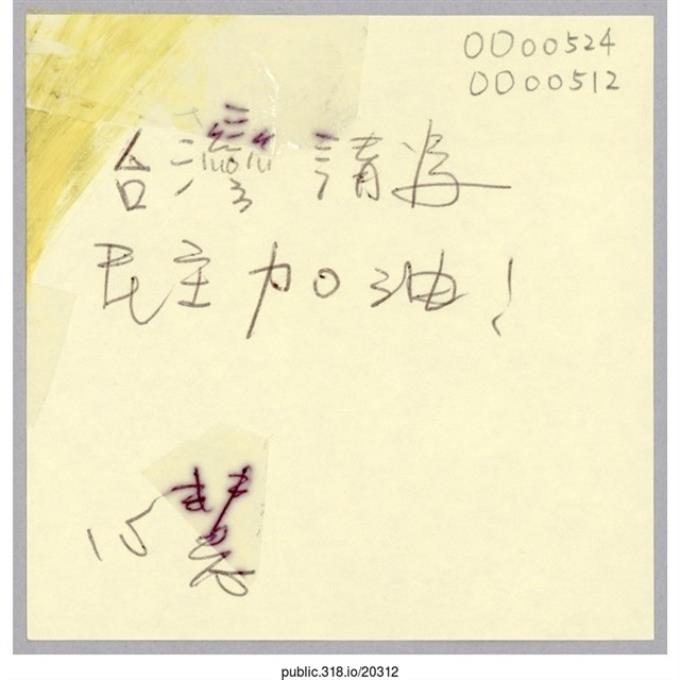 OD00524
OD00512
台灣請為
民主加油!
心慧
public.318.io/20312